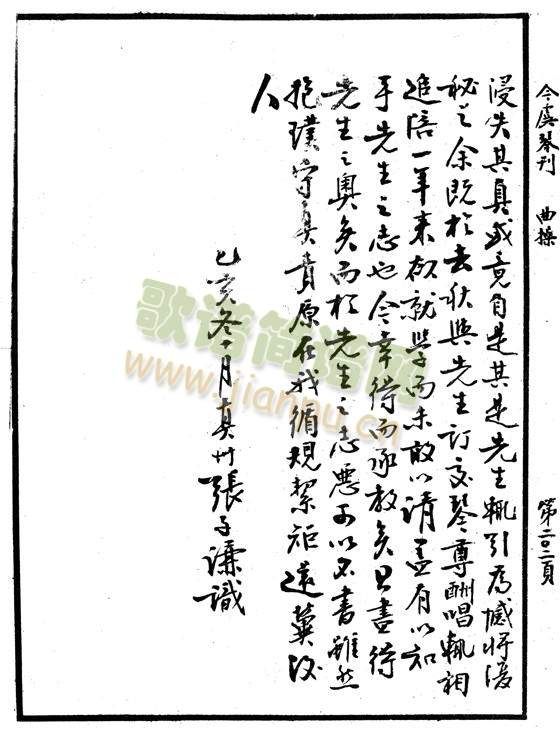 今虞琴刊 曲操 第二〇二頁
浸失其真或竟自是其是先生輒引為憾將浸
秘之余既於去秋與先生訂交琴尊酬唱輒相
追陪一年來欲就學而未敢以請蓋有以知
乎先生之志也今幸得而承教矣且盡得
先生之奧矣而於先生之志惡可以不書雖然
抱璞守真責原在我循規絜矩還冀後
人
己亥冬十月真州張子謙識
歌谱简谱网
www.jianpu.cn